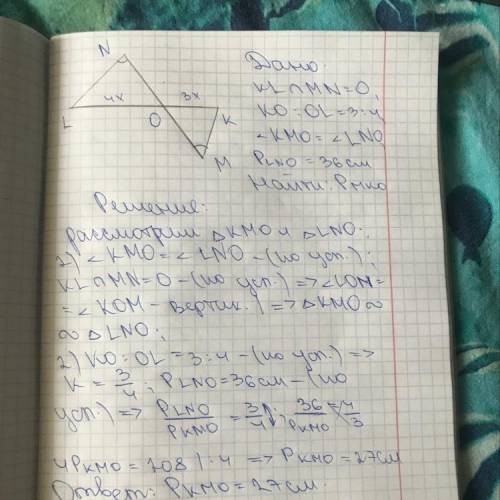 N
4x
3x
L
O
K
M
Дано:
KL∩MN=O,
KO:OL=3:4,
∠KMO=∠LNO,
PLNO=36см
Найти: PМКО
Решение:
рассмотрим △KMO и △LNO:
1) ∠KMO=∠LNO-(по усл.);
KL∩MN=O-(по усл)=>∠LON=
=∠KOM-вертик.)=>△KMO∞
∞△LNO;
2) KO:OL=3:4-(по усл.)=>
K=3/4; PLNO=36см-(по
усл.)=> PLNO/PKMO=3/4; 36/PKMO=4/3
4PKMO=108|:4 => PKMO=27см
Ответ: PKMO=27см.